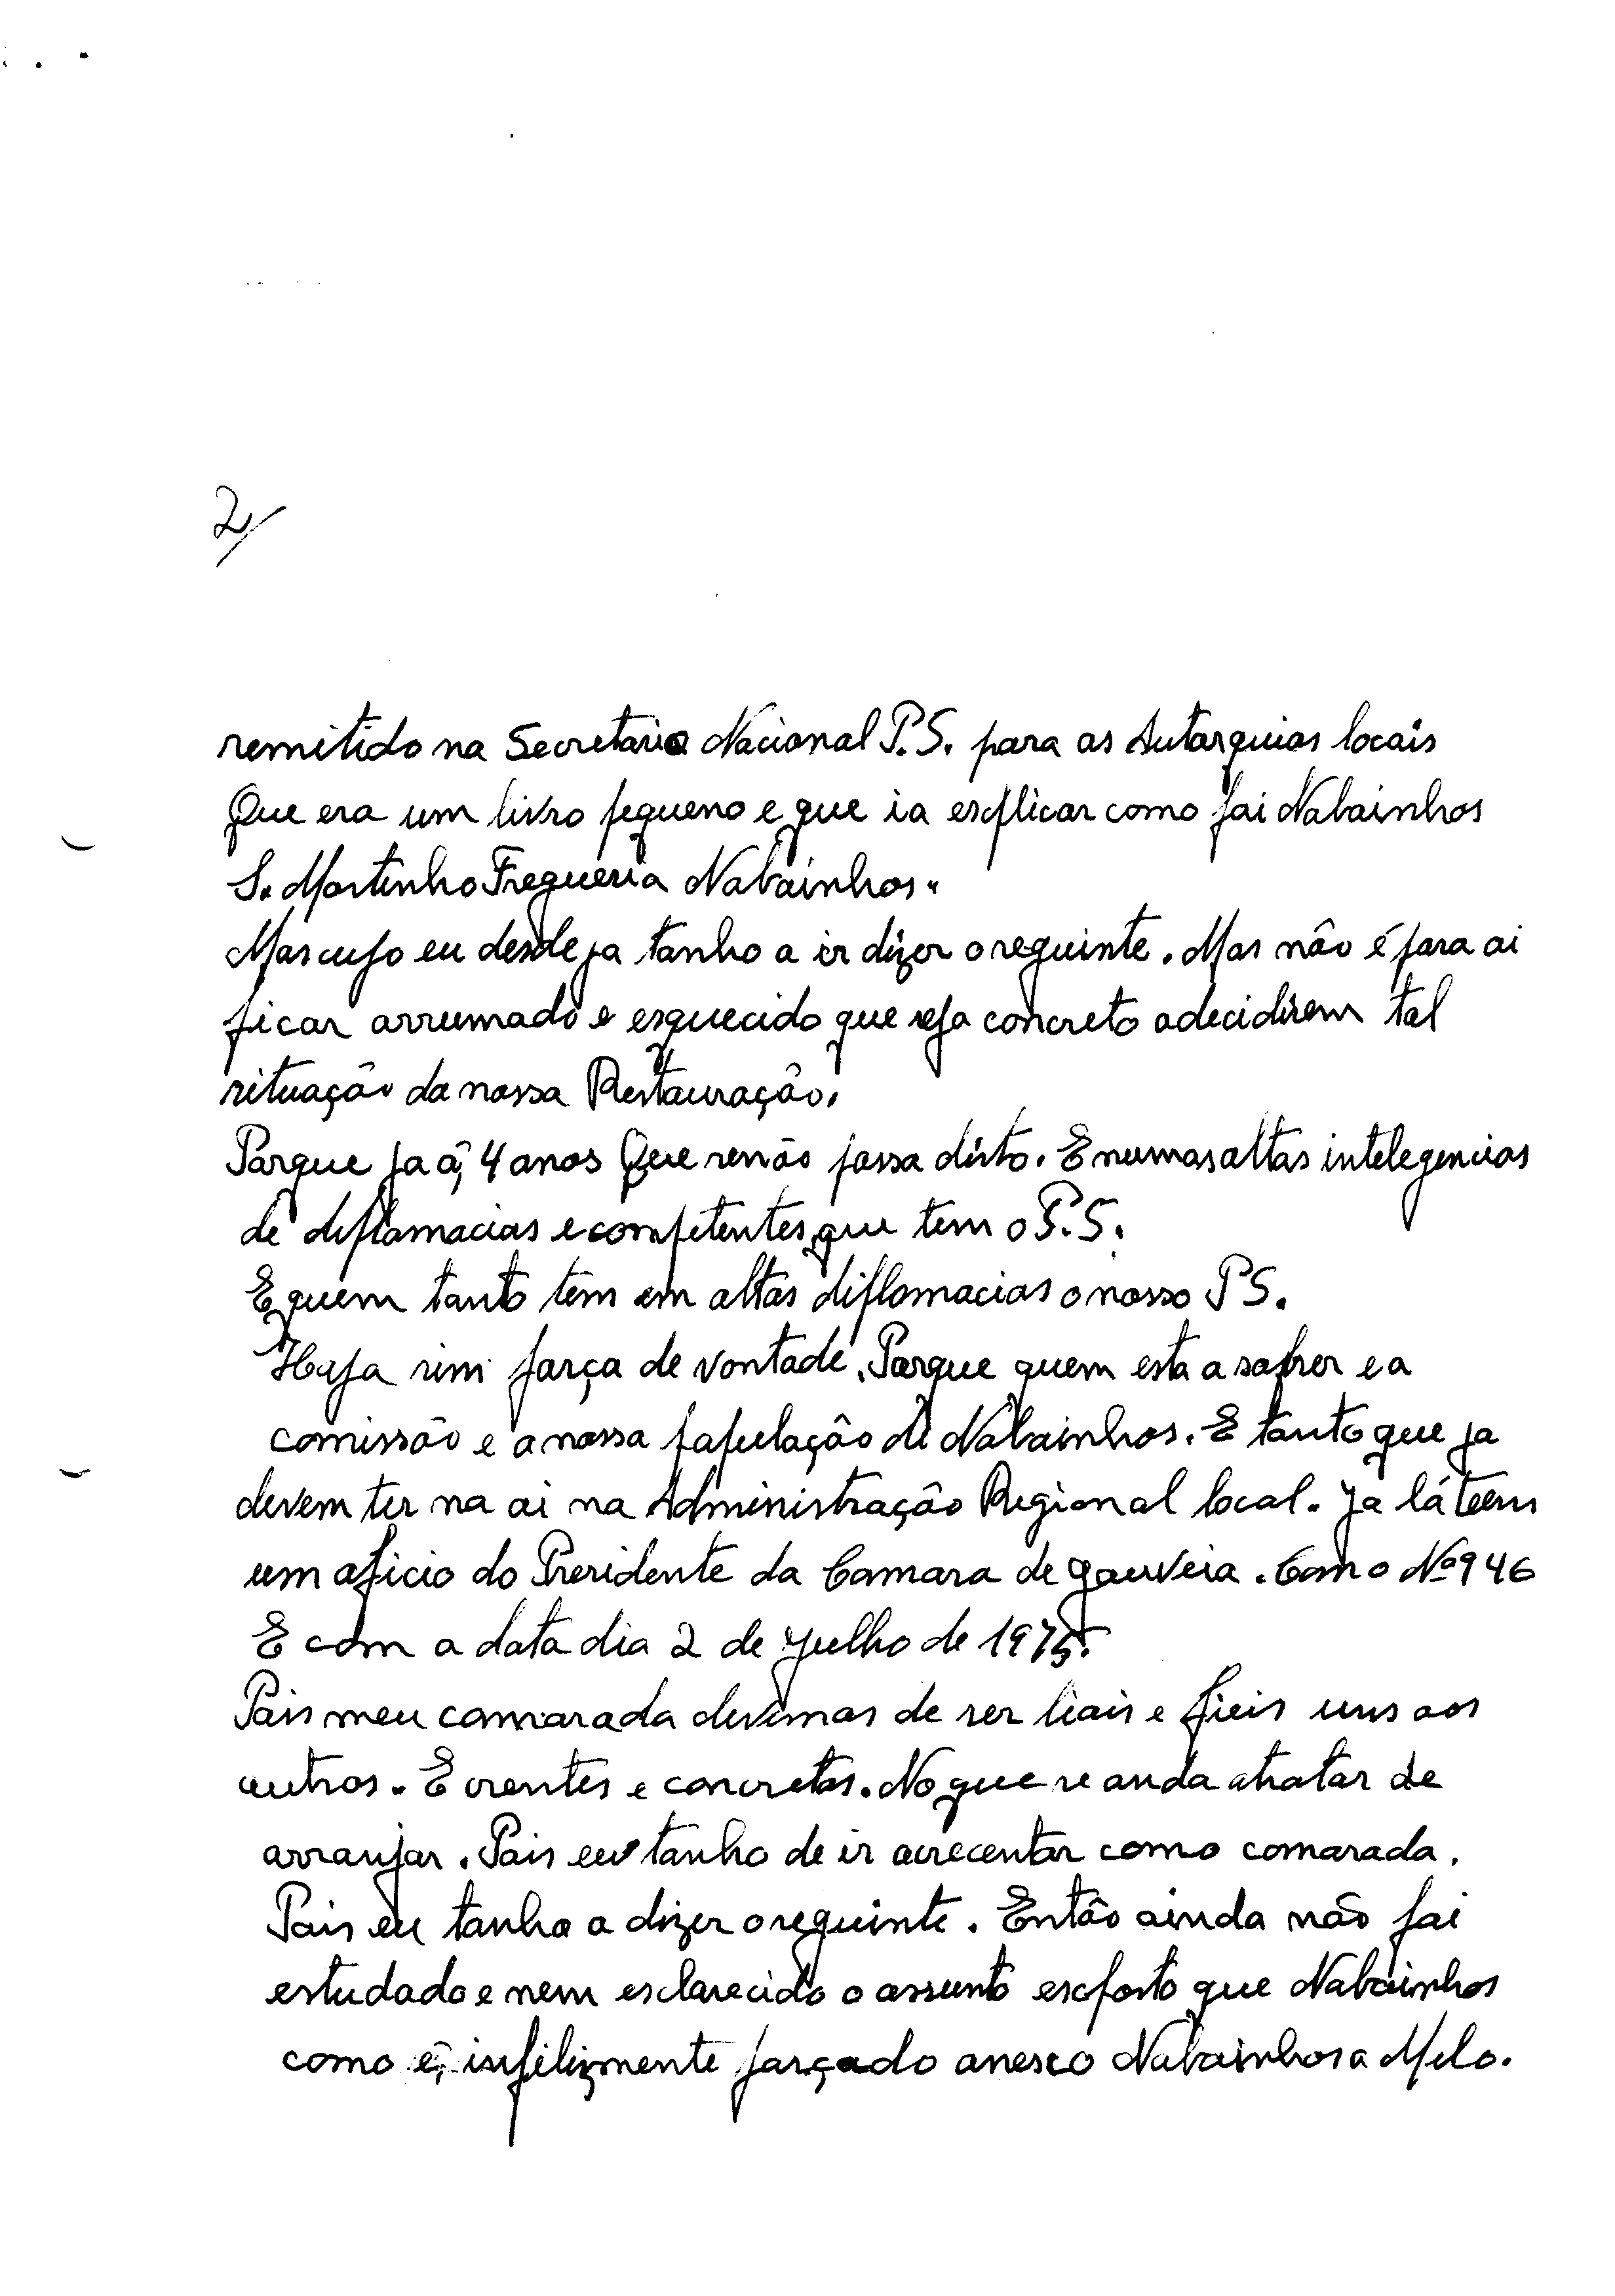 2/
remitido na Secretario Nacional P.S. para as Autarquias locais
Que era um livro pequeno e que ia esplicar como foi Nabainhos
S. Martinho Fregueria Nabainhos.
Mas cujo eu desde ja tanho a ir dizer o seguinte. Mas não é para ai
ficar arrumado e esquecido que seja concreto a decidirem tal
situação da nossa Restauração.
Porque ja á, 4 anos Que se não passa disto. E numas altas intelegencias
de diplomacias e competentes, que tem o P.S.
E quem tanto tem em altas diplomacias o nosso PS.
Haja sim força de vontade. Porque quem esta a sofrer e a
comissão e a nossa população de Nabainhos. E tanto que ja
devem ter na ai na Administração Regional local. Ja lá teem
um oficio do Presidente da Camara de gouveia. Com o Nº 946
E com a data dia 2 de Julho de 1975.
Pois meu camarada devemos de ser liais e fieis uns aos
outros. E crentes e concretos. No que se anda a tratar de
arranjar. Pois eu tanho de ir acrecentar como comarada.
Pois eu tanho a dizer o seguinte. Então ainda não foi
estudado e nem esclarecido o assunto escposto que Nabainhos
como é, infilizmente forçado anesco Nabainhos a Melo.